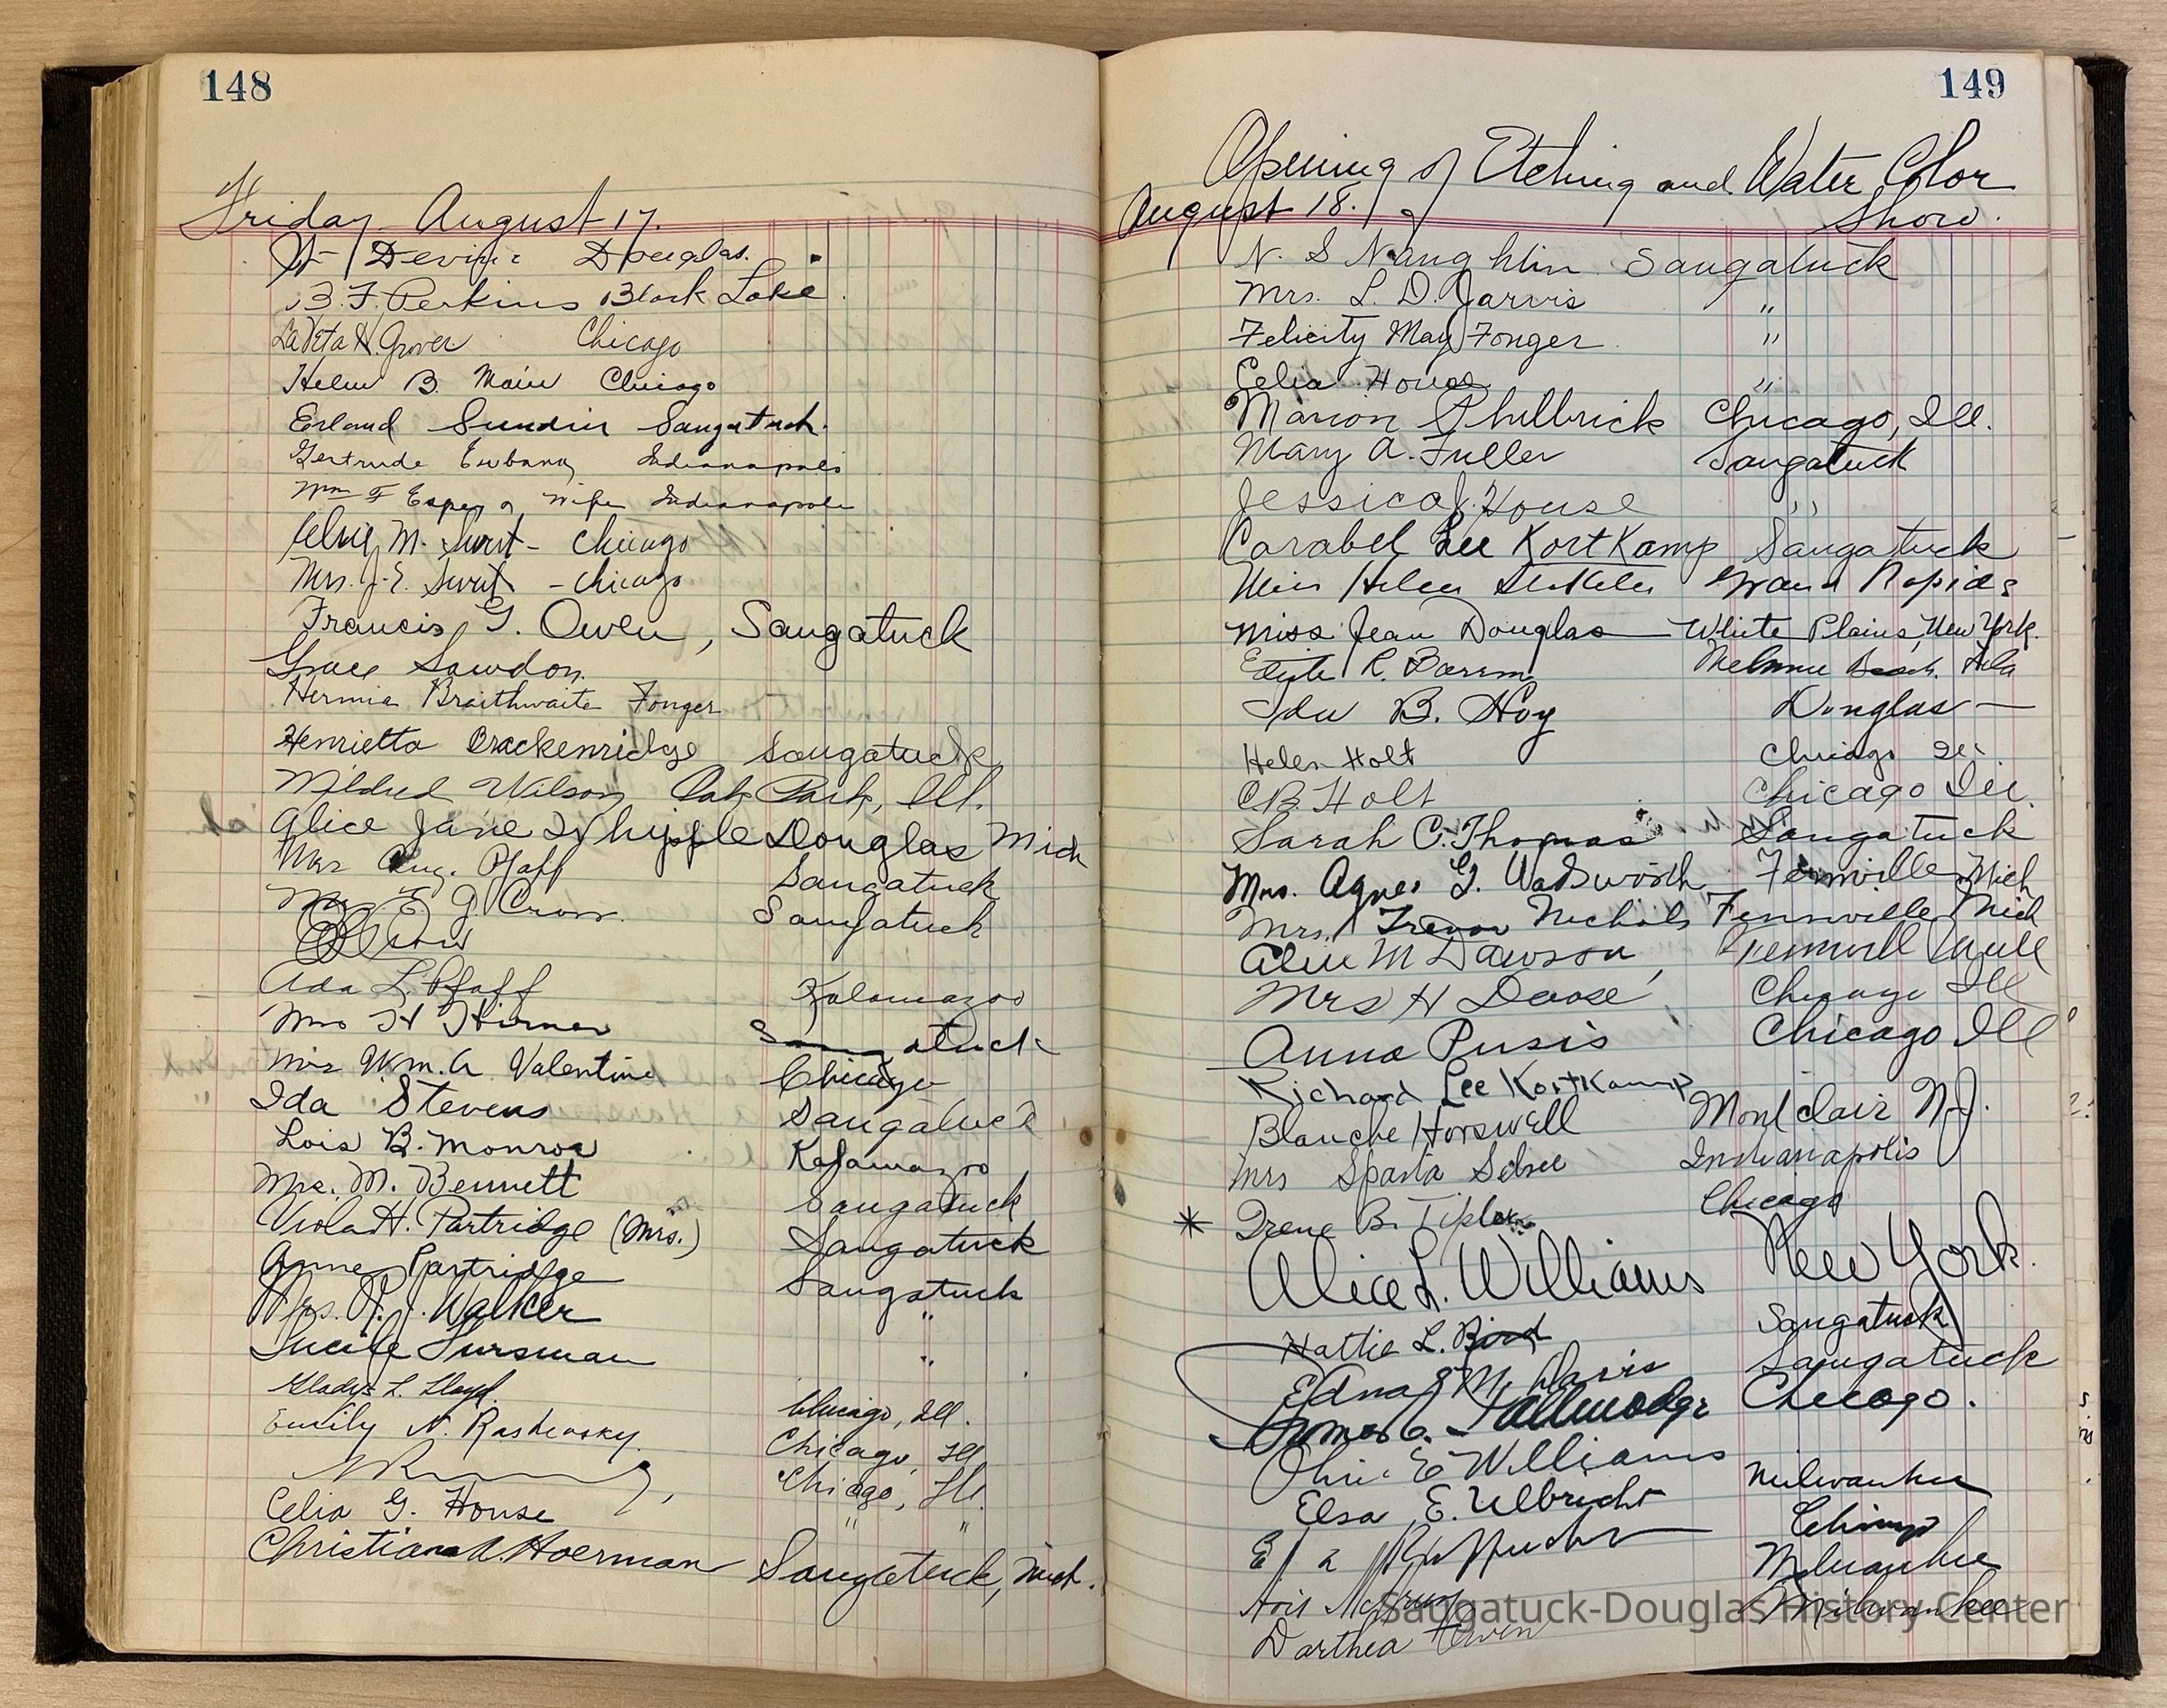 148
Friday August 17.
Devine Douglas.
B. F. Perkins Black Lake
LaVeta H. Grover Chicago
Helen B. Main Chicago
Erland Sundin Saugatuck
Gertrude Ewbank Indianapolis
Wm F Espey & Wife Indianapolis
M. Swist - Chicago
Mrs. J. E. Swist - Chicago
Francis G. Owen, Saugatuck
Grace Sawdon
Hermia Braithwaite Fonger
Henrietta Brackenridge Saugatuck
Mildred Wilson Oak Park, Ill.
Alice Jane Whipple Douglas Mich
Mrs Aug. Pfaff Saugatuck
Mrs E J Cross. Saugatuck
Ada L. Pfaff Kalamazoo
Mrs H Hirner Saugatuck
Mrs Wm. A Valentine Chicago
Ida Stevens Saugatuck
Lois B. Monroe Kalamazoo
Mrs. M. Bennett Saugatuck
Viola H. Partridge (Mrs.) Saugatuck
Anne Partridge Saugatuck
Mrs. R. J. Walker "
Lucile Sursman "
Gladys L. Lloyd. Chicago, Ill.
Emily N. Rashevsky. Chicago, Ill
Chicago, Ill.
Celia G. House " "
Christiana A. Hoerman Saugatuck, Mich.
149
Opening of Etching and Water Color
August 18. Show.
N. S Naughtin Saugatuck
Mrs. L. D. Jarvis "
Felicity May Fonger "
Celia House "
Marion Philbrick Chicago, Ill.
Mary A. Fuller Saugatuck
Jessica J. House "
Carabel Lee KortKamp Saugatuck
Miss Helen Grand Rapids
Miss Jean Douglas White Plains, New York.
R. Beach. Fla
Ida B. Hoy Douglas
Helen Holt Chicago Ill.
C B. Holt Chicago Ill.
Sarah C. Thomas Saugatuck
Mrs. Agnes G. Wadsworth Fennville Mich
Mrs. Trevor Nichols Fennville Mich
M Dawson
Mrs H Doose Chicago Ill
Anna Pusis Chicago Ill
Richard Lee KortKamp
Blanche Horswell Montclair N.J.
Mrs Indianapolis
* Irene B. Chicago
Alice L. Williams New York.
Hattie L. Bird Saugatuck
Edna M. Davis Saugatuck
Tallmadge Chicago.
E Williams
Elsa E. Ulbricht Milwaukee
Chicago
Milwaukee
Milwaukee
Darthea Owen
Saugatuck-Douglas History Center